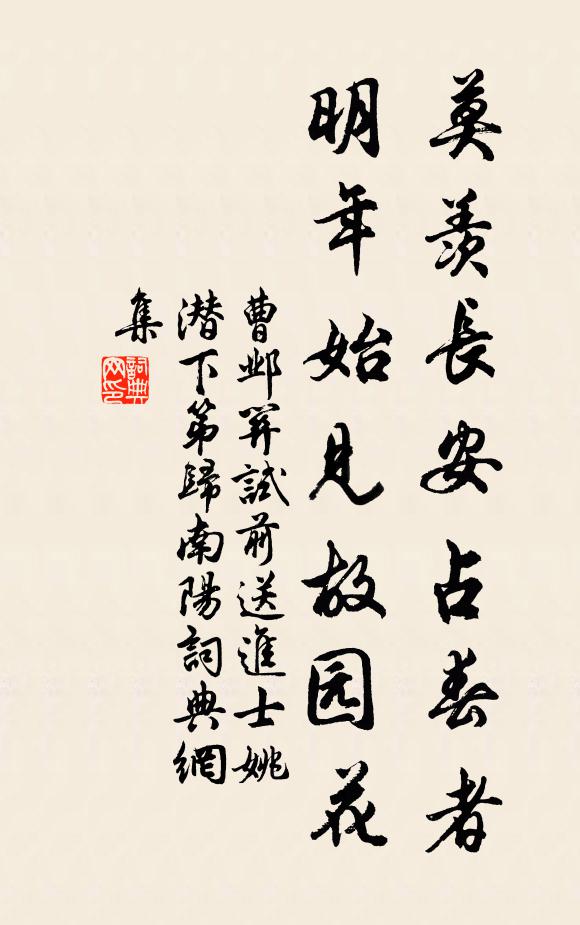 莫羨長安占春者
明年始見故园花
曹邺関試前送進士姚
潜下第歸南陽詞典網
集
詞典
网印